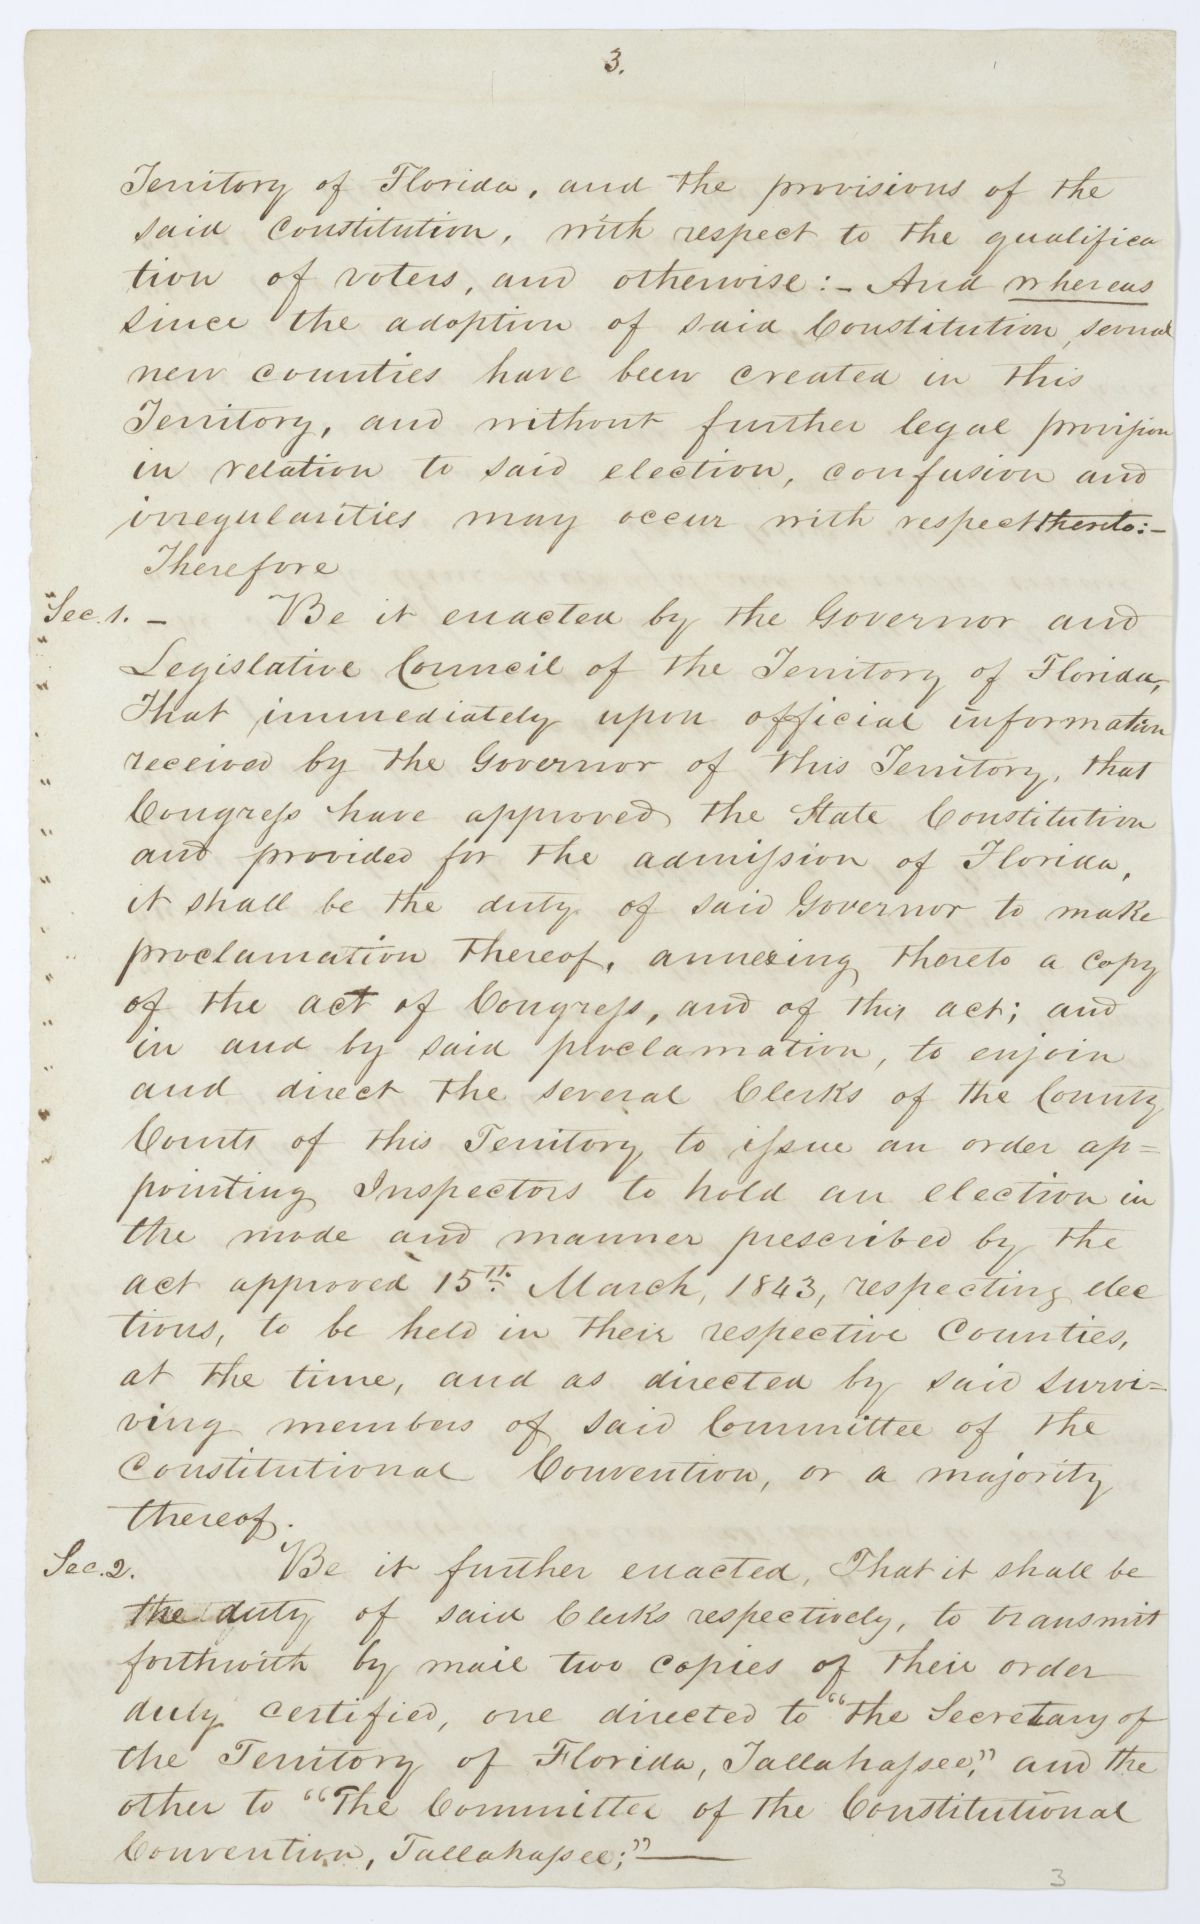 3.
Territory of Florida, and the provisions of the
said Constitution, with respect to the qualifica
tion of voters, and otherwise:- And whereas
since the adoption of said Constitution, several
new counties have been created in this
Territory, and without further legal provision
in relation to said election, confusion and
irregularities may occur with respect thereto:-
Therefore
Sec. 1. - Be it enacted by the Governor and
" Legislative Council of the Territory of Florida,
" That immediately upon official information
received by the Governor of this Territory, that
" Congress have approved the State Constitution
" and provided for the admission of Florida,
" it shall be the duty of said Governor to make
" proclamation thereof, annexing thereto a copy
" of the act of Congress, and of this act; and
" in and by said proclamation, to enjoin
" and direct the several Clerks of the County
" Courts of this Territory to issue an order ap=
pointing Inspectors to hold an election in
the mode and manner prescribed by the
act approved 15th. March, 1843, respecting elec
tions, to be held in their respective Counties,
at the time, and as directed by said survi=
ving members of said Committee of the
Constitutional Convention, or a majority
thereof.
Sec. 2. Be it further enacted, That it shall be
the duty of said Clerks respectively, to transmit
forthwith by mail two copies of their order
duly certified, one directed to "the Secretary of
the Territory of Florida, Tallahassee," and the
other to "The Committee of the Constitutional
Convention, Tallahassee;"—
3